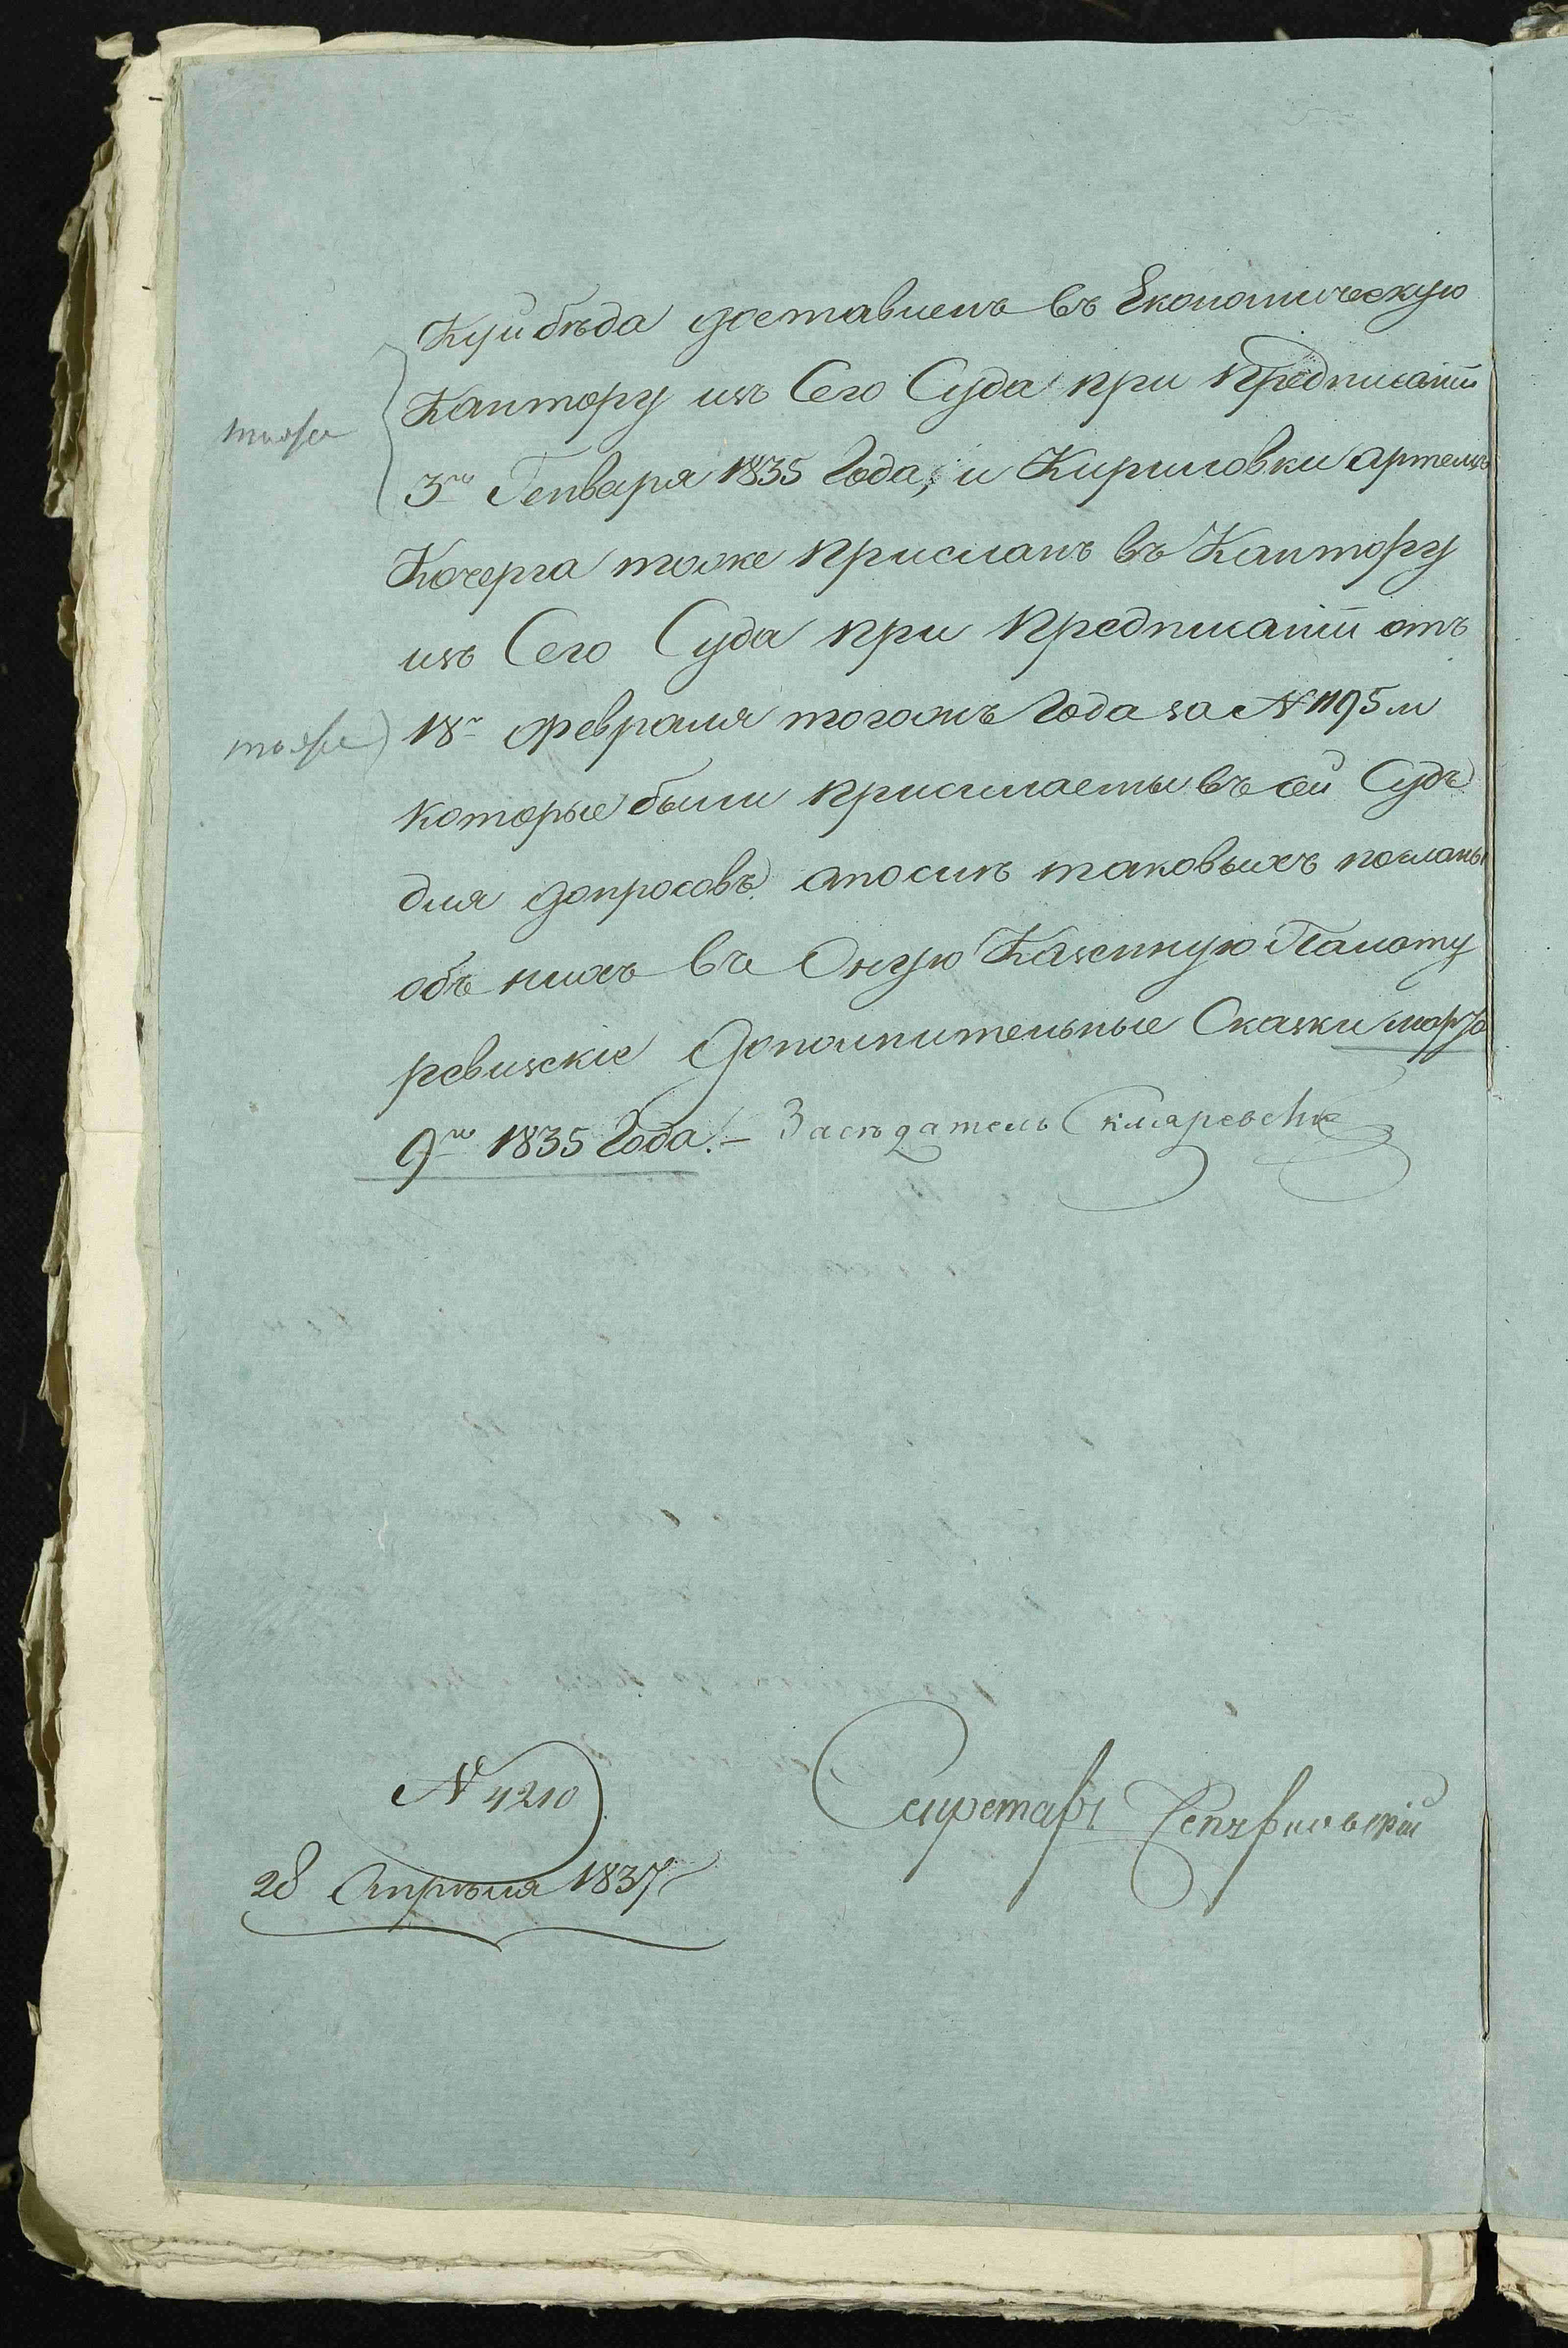 Куибѣда доставленъ въ Економическую
Кантору изъ Сего Суда при предписаніи
тоже
3го Генваря 1835 Года, и Кириловки Артемъ
Кочерга тоже присланъ въ Кантору
изъ Сего Суда при предписаніи отъ
тоже
18го Февраля тогожъ Года за № 1195м
которые были присылаемы въ сей Судъ
для допросовъ, апослѣ таковыхъ посланы
объ нихъ въ Оную Казенную Палату
ревизскіе дополнительные Сказки марта
9го 1835 Года. – Засѣдатель Скляревскій
№ 4210
28 Апрѣля 1837
Секретарь